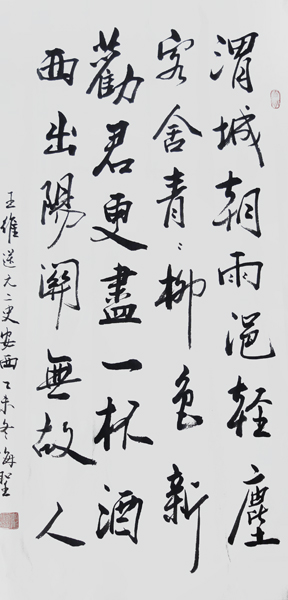 渭城朝雨浥輕塵
客舍青〻柳色新
勸君更盡一杯酒
西出陽關無故人
王維送元二史安西乙未冬海聖